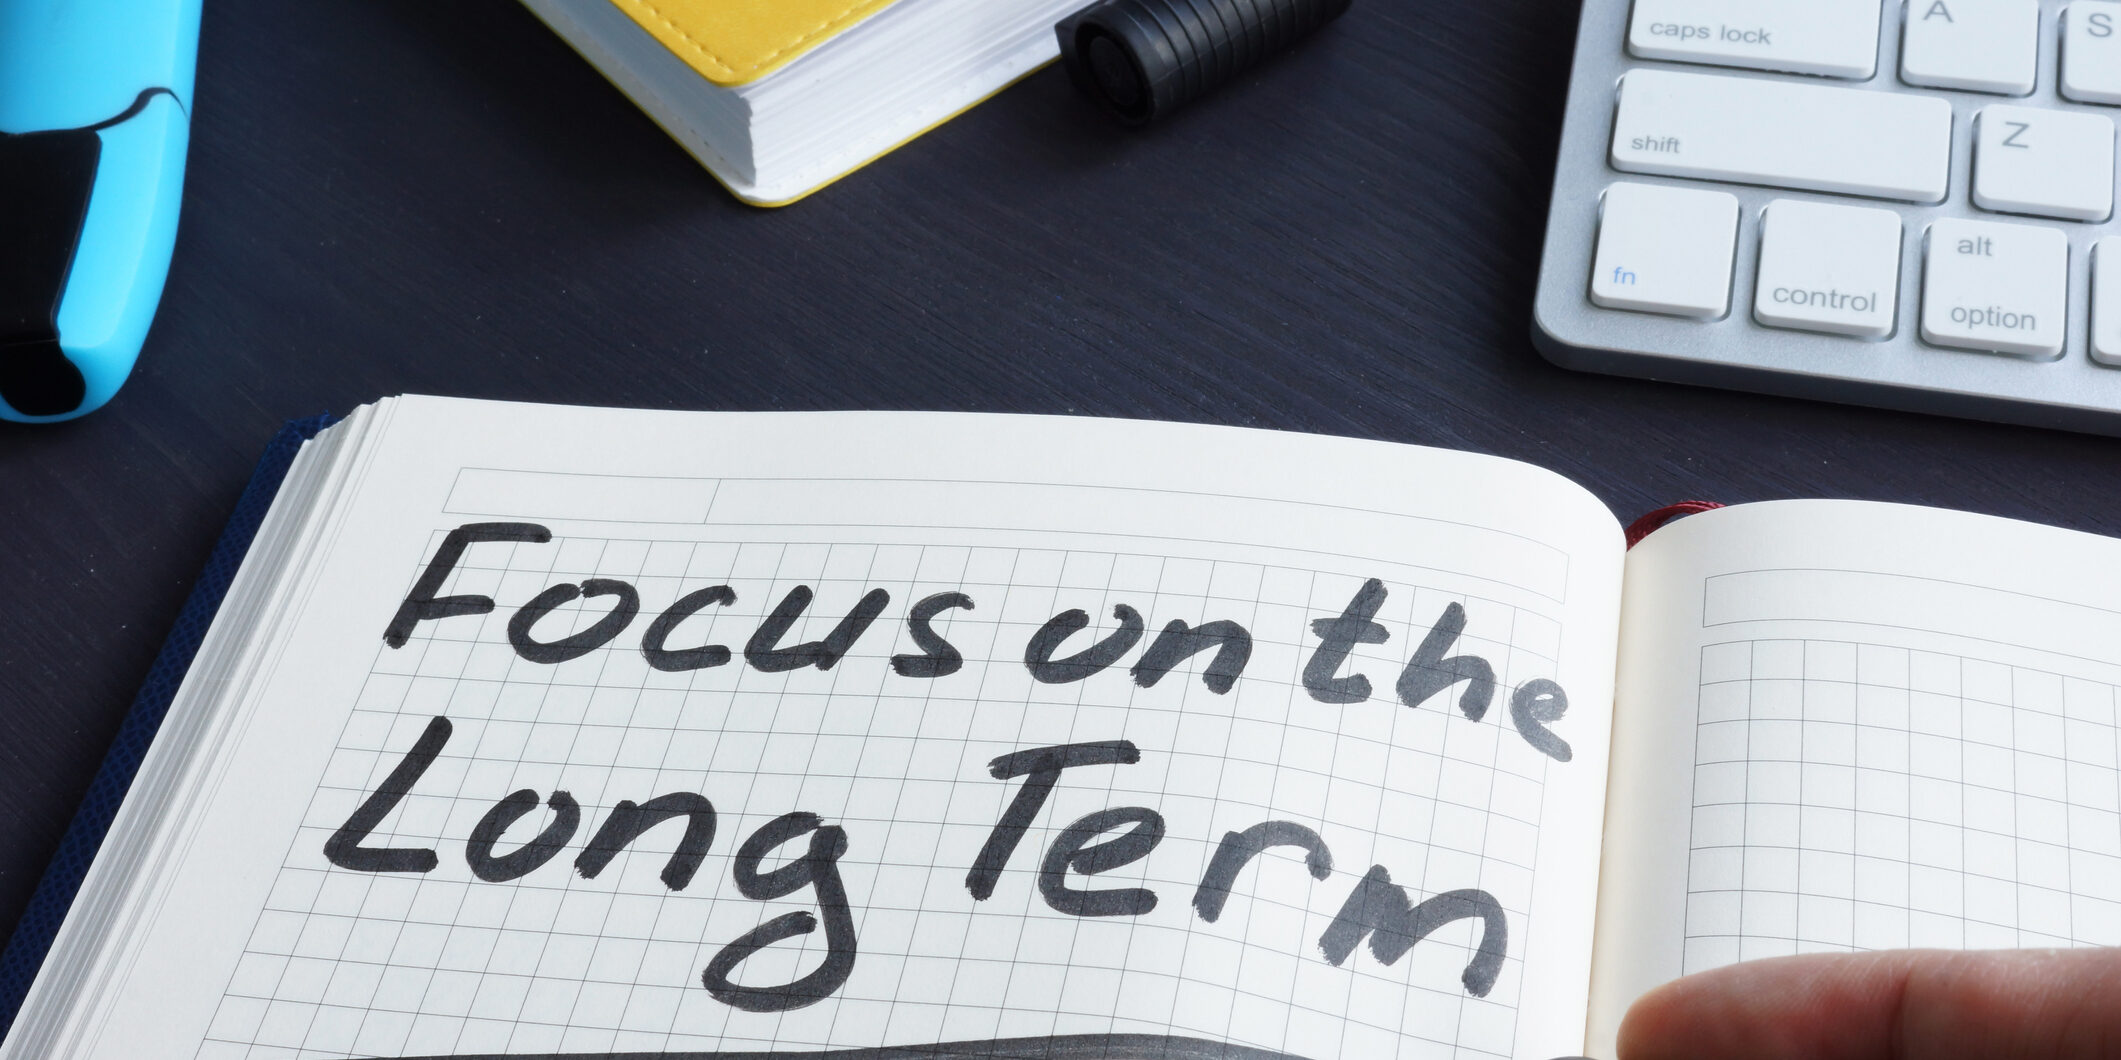 caps lock
A
S
shift
Z
fn
control
alt
option
Focus on the
Long Term